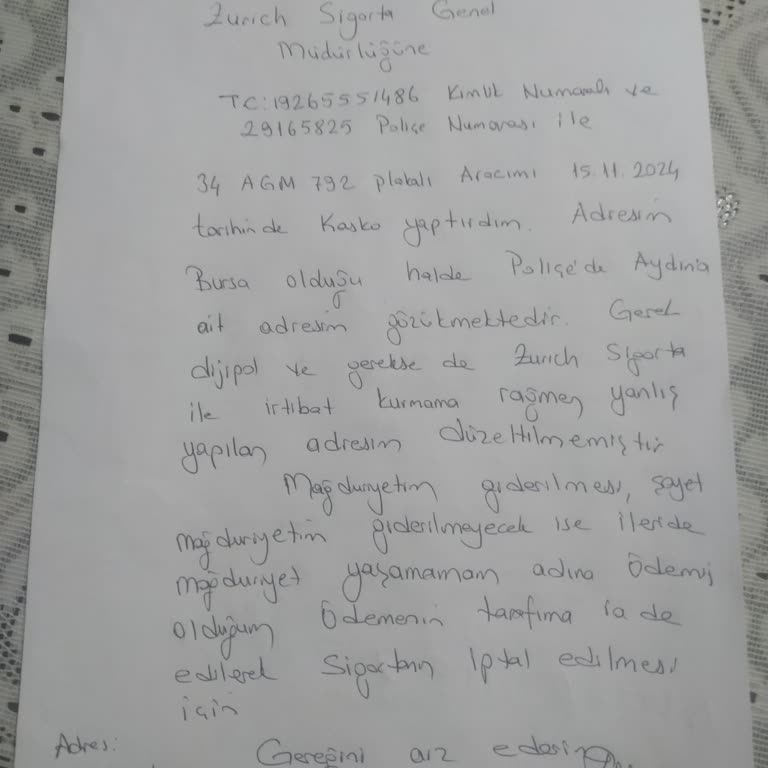 Zurich Sigorta Genel
Müdürlüğüne
TC:19265551486 Kimlik Numaralı ve
29165825 Poliçe Numarası ile
34 AGM 792 plakalı Aracımı 15.11.2024
tarihinde Kasko yaptırdım. Adresim
Bursa olduğu halde Poliçe'de Aydın'a
ait adresim gözükmektedir. Gerek
dijipol ve gerekse de Zurich Sigorta
ile irtibat kurmama rağmen yanlış
yapılan adresim düzeltilmemiştir
Mağduriyetim giderilmesi, şayet
mağduriyetim giderilmeyecek ise ileride
mağduriyet yaşamamam adına ödemiş
olduğum ödemenin tarafıma iade
edilerek Sigortanın iptal edilmesi
için
Adres: Gereğini arz ederim.